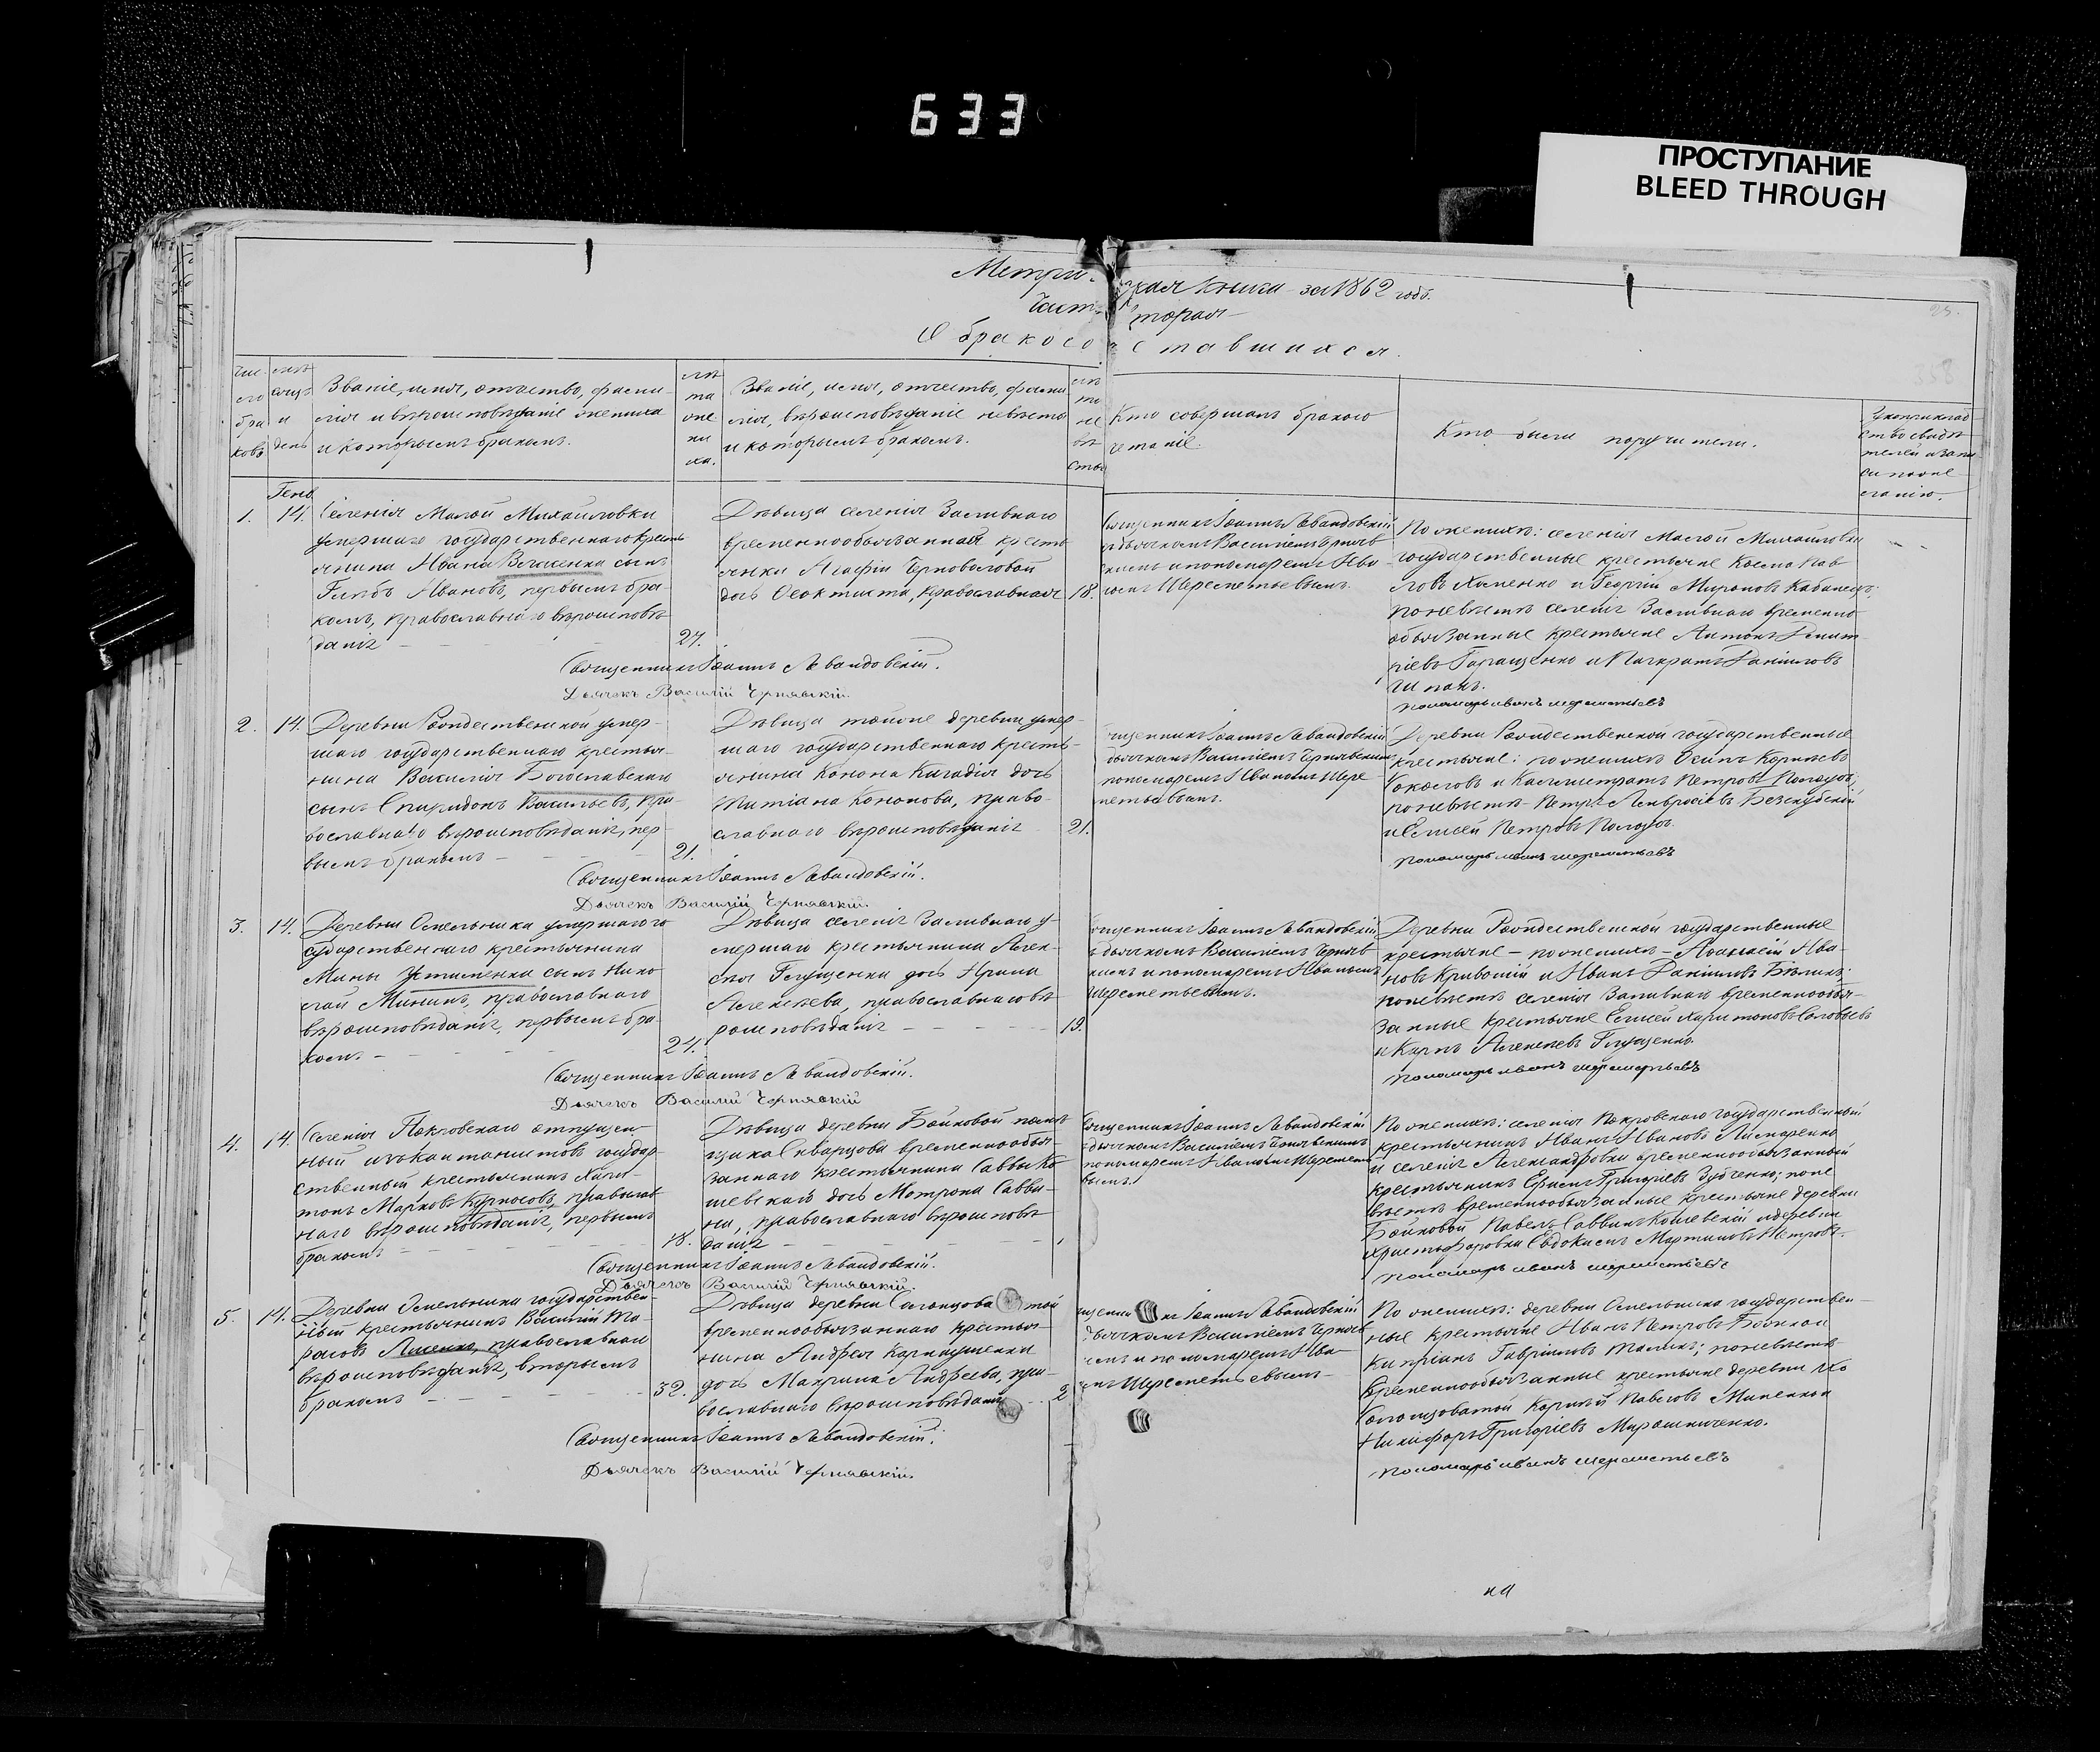 633
ПРОСТУПАНИЕ
BLEED THROUGH
Метри-ческая Книга за 1862 годъ.
Часть вторая
О бракосочетавшихся.
Званіе, имя, отчество, фами-
лія и вѣроисповѣданіе жениха
и которымъ бракомъ.
лѣ
та
же
ни
ха.
Званіе, имя, отчество, фами
лія, вѣроисповѣданіе невѣсты
и которымъ бракомъ.
лѣ
та
не
вѣ
сты
Кто совершалъ бракосо
четаніе.
Кто были поручители.
Генв.
1. 14.
Селенія Малой Михайловки
умершаго государственнаго кресть
янина Ивана сынъ
Глѣбъ Ивановъ, первымъ бра-
комъ, православнаго вѣроисповѣ
данія
27.
Дѣвица селенія Заливнаго
временнообязанной кресть
янки Агафіи Черноваловой
дочь Ѳеоктиста, православная
18.
Священникъ Іоаннъ Левандовскій
съ дьячкомъ Василіемъ Черняв
скимъ и пономаремъ Ива-
номъ Шереметьевымъ.
По женихѣ: селенія Малой Михайловки
государственные крестьяне Косма Пав
ловъ Хоменко и Георгій Мироновъ Кабанецъ;
по невѣстѣ селенія Заливнаго временно
обязанные крестьяне Антонъ
Гаращенко и Панкратъ Даніиловъ
Священникъ Іоаннъ Левандовскій.
Дьячекъ Василій Чернявскій.
Пономарь иванъ шереметьевъ
2. 14.
Деревни Рождественской умер-
шаго государственнаго крестья-
нина Василія Богославскаго
сынъ Спиридонъ Васильевъ, пра-
вославнаго вѣроисповѣданія, пер-
вымъ бракомъ
21.
Дѣвица тойже деревни умер-
шаго государственнаго кресть-
янина Конона дочь
Татіана Кононова, право-
славнаго вѣроисповѣданія
21.
Священникъ Іоаннъ Левандовскій
дьячкомъ Василіемъ Чернявскимъ
пономаремъ Иваномъ Шере-
метьевымъ.
Деревни Рождественской государственные
крестьяне: по женихѣ Осипъ Корнѣевъ
Соколовъ и Каллистратъ Петровъ
по невѣстѣ Петръ Амвросіевъ Безкубскій
и Елисей Петровъ
Священникъ Іоаннъ Левандовскій.
Дьячекъ Василій Чернявскій.
Пономарь иванъ шереметьевъ
3. 14.
Деревни Омельника умершаго го
сударственнаго крестьянина
Мины Устименка сынъ Нико
лай Мининъ, православнаго
вѣроисповѣданія, первымъ бра-
комъ
24.
Дѣвица селенія Заливнаго у-
мершаго крестьянина Алек-
сѣя Глущенки дочь Ирина
Алексѣева, православнаго вѣ
роисповѣданія
19.
Священникъ Іоаннъ Левандовскій
съ дьячкомъ Василіемъ Черняв
скимъ и пономаремъ Иваномъ
Шереметьевымъ.
Деревни Рождественской государственные
крестьяне - по женихѣ - Аѳанасій Ива
новъ Кривошій и Иванъ Даніиловъ Бѣликъ;
по невѣстѣ селенія Заливнаго временнообя-
занные крестьяне Елисей Харитоновъ Соловьевъ
и Карпъ Алексѣевъ Глущенко.
Священникъ Іоаннъ Левандовскій.
Дьячекъ Василий Чернявскій
Пономарь иванъ шереметьевъ
4. 14.
Селенія Покровскаго отпущен
ный изъ кантонистовъ государ-
ственный крестьянинъ Хари-
тонъ Марковъ Курносовъ, православ
наго вѣроисповѣданія, первымъ
бракомъ
18.
Дѣвица деревни Бойковой помѣ
щика Скварцова временнообя-
заннаго крестьянина Саввы Ко
шевскаго дочь Матрона Савви-
на, православнаго вѣроисповѣ
данія
Священникъ Іоаннъ Левандовскій
съ дьячкомъ Василіемъ Чернявскимъ
пономаремъ Иваномъ Шеремет
вымъ
По женихѣ: селенія Покровскаго государственный
крестьянинъ Иванъ Ивановъ Писаренко
и селенія Александровки временнообязанный
крестьянинъ Ефимъ Григоріевъ Зубченко; поне
вѣстѣ временнообязанные крестьяне деревни
Бойковой Павелъ Саввинъ Кошевскій и деревни
Христофоровки Евдокимъ Мартиновъ Петровъ.
Священникъ Іоаннъ Левандовскій.
Дьячекъ Василій Чернявскій.
Пономарь иванъ шереметьевъ
5. 14.
Деревни Омельника государствен-
ный крестьянинъ Василій Та-
расовъ Лисенко, православнаго
вѣроисповѣданія, вторымъ
бракомъ
32.
Дѣвица деревни
временнообязаннаго крестья-
нина Андрея Карпушенки
дочь Макрина Андреева, пра-
вославнаго вѣроисповѣданія
2
Священникъ Іоаннъ Левандовскій
дьячкомъ Василіемъ Черняв
скимъ и пономаремъ Ива-
номъ Шереметьевымъ
По женихѣ: деревни Омельника государствен-
ные крестьяне Иванъ Петровъ
Кипріанъ Гавріиловъ по невѣстѣ
временнообязанные крестьяне деревни
Корнѣй Павловъ Миненко и
Никифоръ Григоріевъ Мирошниченко.
Священникъ Іоаннъ Левандовскій.
Дьячекъ Василій Чернявскій.
Пономарь иванъ шереметьевъ